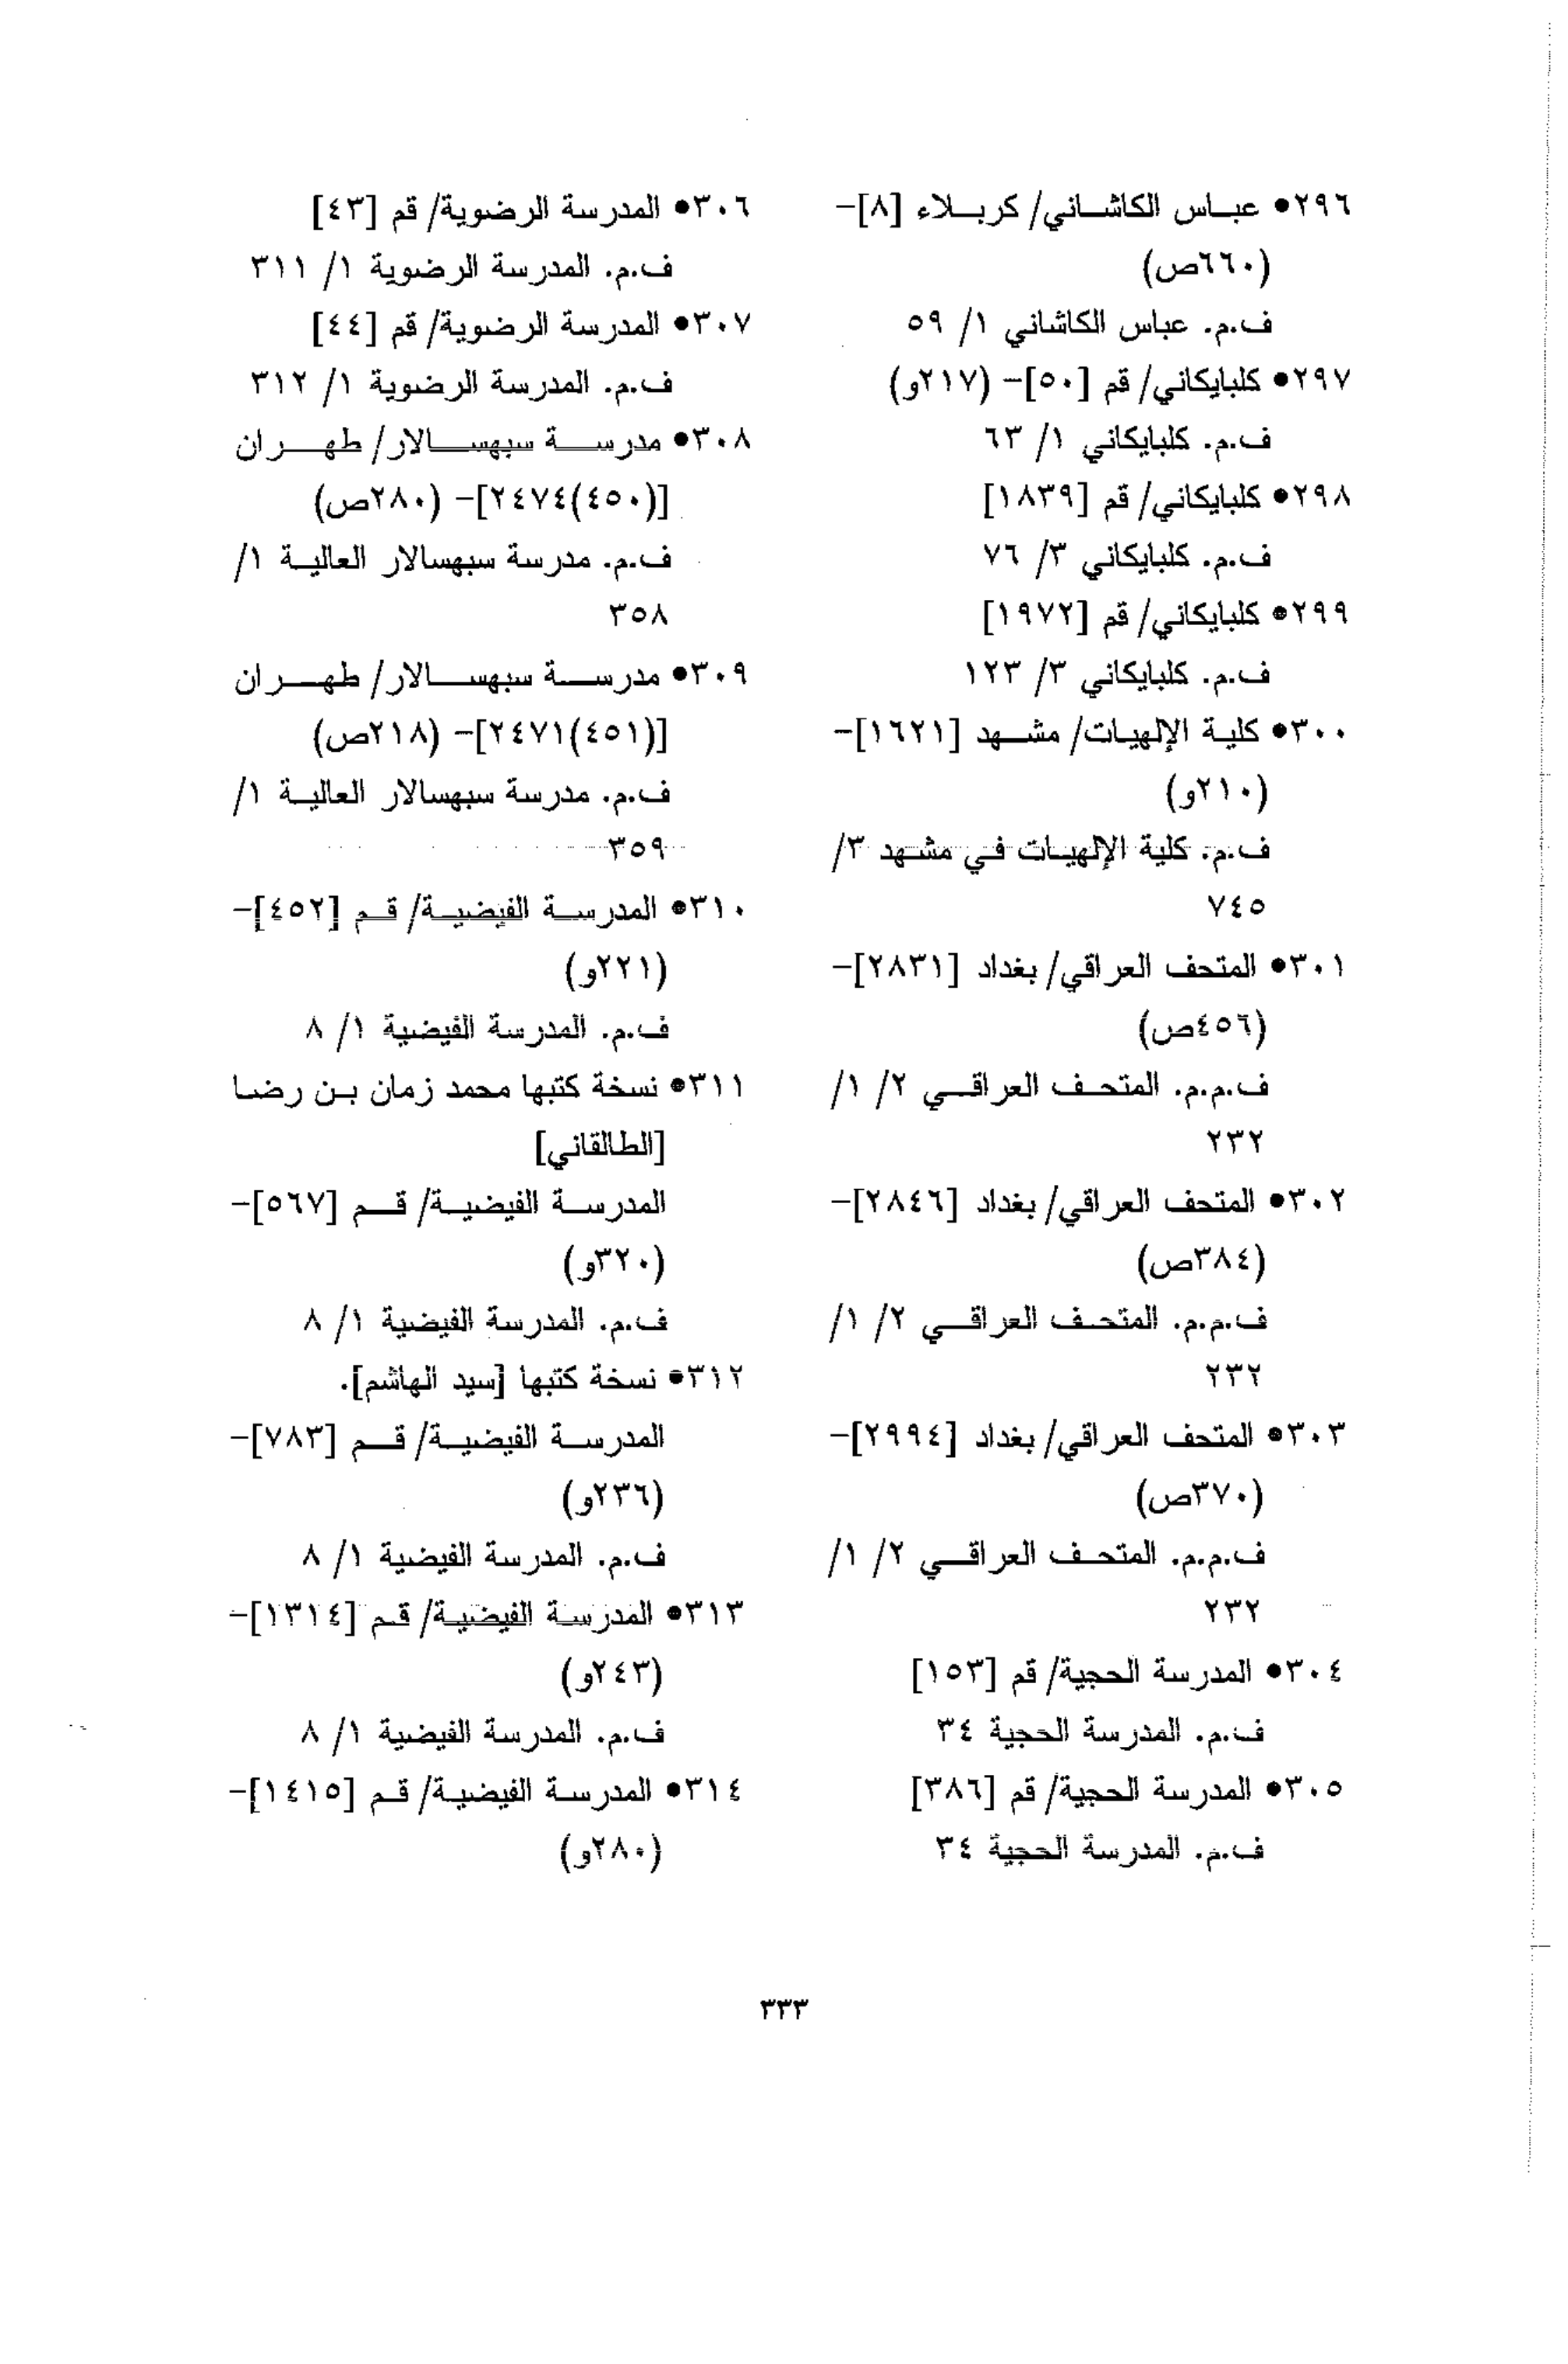 ٢٩٦● عباس الكاشاني/ كربلاء [٨]-
(٦٦٠ص)
ف.م. عباس الكاشاني ١/ ٥٩
٢٩٧● كلبايكاني/ قم [٥٠]- (٢١٧و)
ف.م. كلبايكاني ١/ ٦٣
٢٩٨● كلبايكاني/ قم [١٨٣٩]
ف.م. كلبايكاني ٣/ ٧٦
٢٩٩● كلبايكاني/ قم [١٩٧٢]
ف.م. كلبايكاني ٣/ ١٢٣
٣٠٠● كلية الإلهيات/ مشهد [١٦٢١]-
(٢١٠و)
ف.م. كلية الإلهيات في مشهد ٣/
٧٤٥
٣٠١● المتحف العراقي/ بغداد [٢٨٣١]-
(٤٥٦ص)
ف.م.م. المتحف العراقي ٢/ ١/
٢٣٢
٣٠٢● المتحف العراقي/ بغداد [٢٨٤٦]-
(٣٨٤ص)
ف.م.م. المتحف العراقي ٢/ ١/
٢٣٢
٣٠٣● المتحف العراقي/ بغداد [٢٩٩٤]-
(٣٧٠ص)
ف.م.م. المتحف العراقي ٢/ ١/
٢٣٢
٣٠٤● المدرسة الحجية/ قم [١٥٣]
ف.م. المدرسة الحجية ٣٤
٣٠٥● المدرسة الحجية/ قم [٣٨٦]
ف.م. المدرسة الحجية ٣٤
٣٠٦● المدرسة الرضوية/ قم [٤٣]
ف.م. المدرسة الرضوية ١/ ٣١١
٣٠٧● المدرسة الرضوية/ قم [٤٤]
ف.م. المدرسة الرضوية ١/ ٣١٢
٣٠٨● مدرسة سبهسالار/ طهران
[(٤٥٠)٢٤٧٤]- (٢٨٠ص)
ف.م. مدرسة سبهسالار العالية ١/
٣٥٨
٣٠٩● مدرسة سبهسالار/ طهران
[(٤٥١)٢٤٧١]- (٢١٨ص)
ف.م. مدرسة سبهسالار العالية ١/
٣٥٩
٣١٠● المدرسة الفيضية/ قم [٤٥٢]-
(٢٢١و)
ف.م. المدرسة الفيضية ١/ ٨
٣١١● نسخة كتبها محمد زمان بن رضا
[الطالقاني]
المدرسة الفيضية/ قم [٥٦٧]-
(٣٢٠و)
ف.م. المدرسة الفيضية ١/ ٨
٣١٢● نسخة كتبها [سيد الهاشم].
المدرسة الفيضية/ قم [٧٨٣]-
(٢٣٦و)
ف.م. المدرسة الفيضية ١/ ٨
٣١٣● المدرسة الفيضية/ قم [١٣١٤]-
(٢٤٣و)
ف.م. المدرسة الفيضية ١/ ٨
٣١٤● المدرسة الفيضية/ قم [١٤١٥]-
(٢٨٠و)
٣٣٣